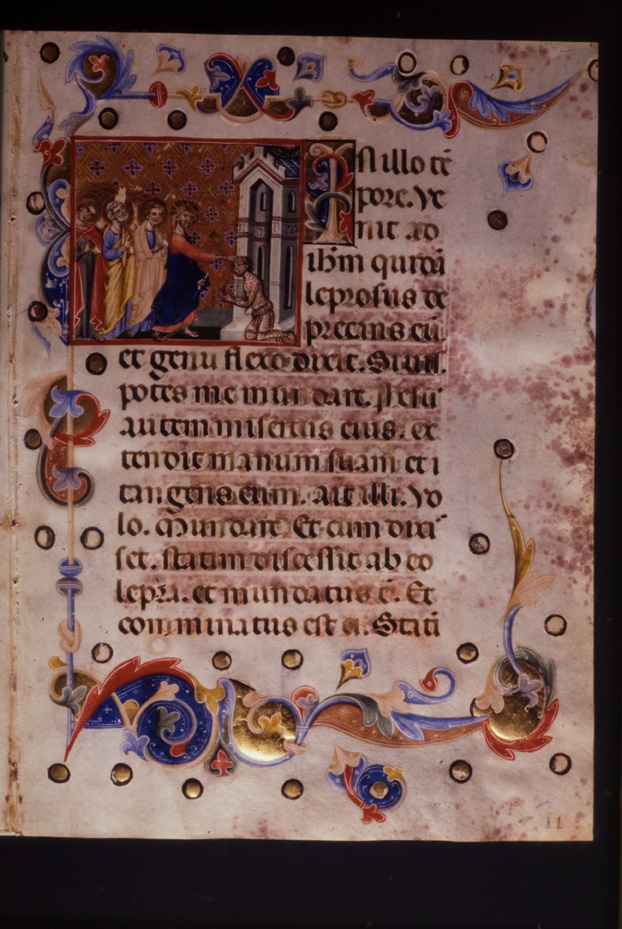 In illo tē
pore. Ve
nit ad
ihm quidā
leprosus de
precans eū
et genu flexo dixit. Si vis.
potes me mundare. Ihesus
autem misertus eius. ex
tendit manum suam et
tangens eum. ait illi. Vo
lo. Mundare. Et cum dixi
set. statim discessit ab eo
lepra. et mundatus ē. Et
comminatus est ei. Statī
11